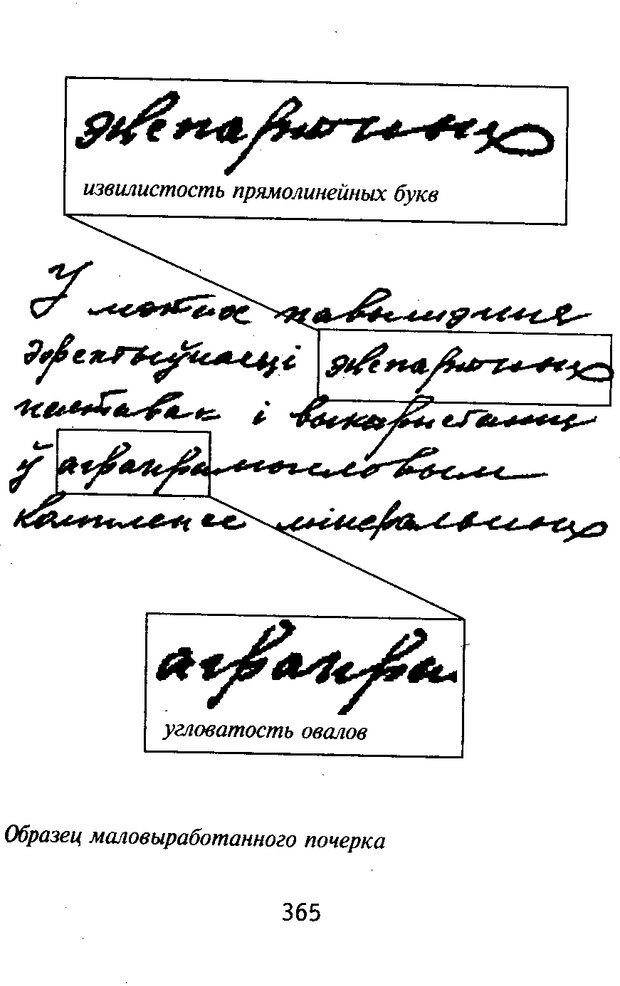 экспартных
извилистость прямолинейных букв
У мэтах павышэння
эфектыўнасці экспартных
паставак і
ў аграпрамысловым
комплексе мінеральных
аграпра
угловатость овалов
Образец маловыработанного почерка
365